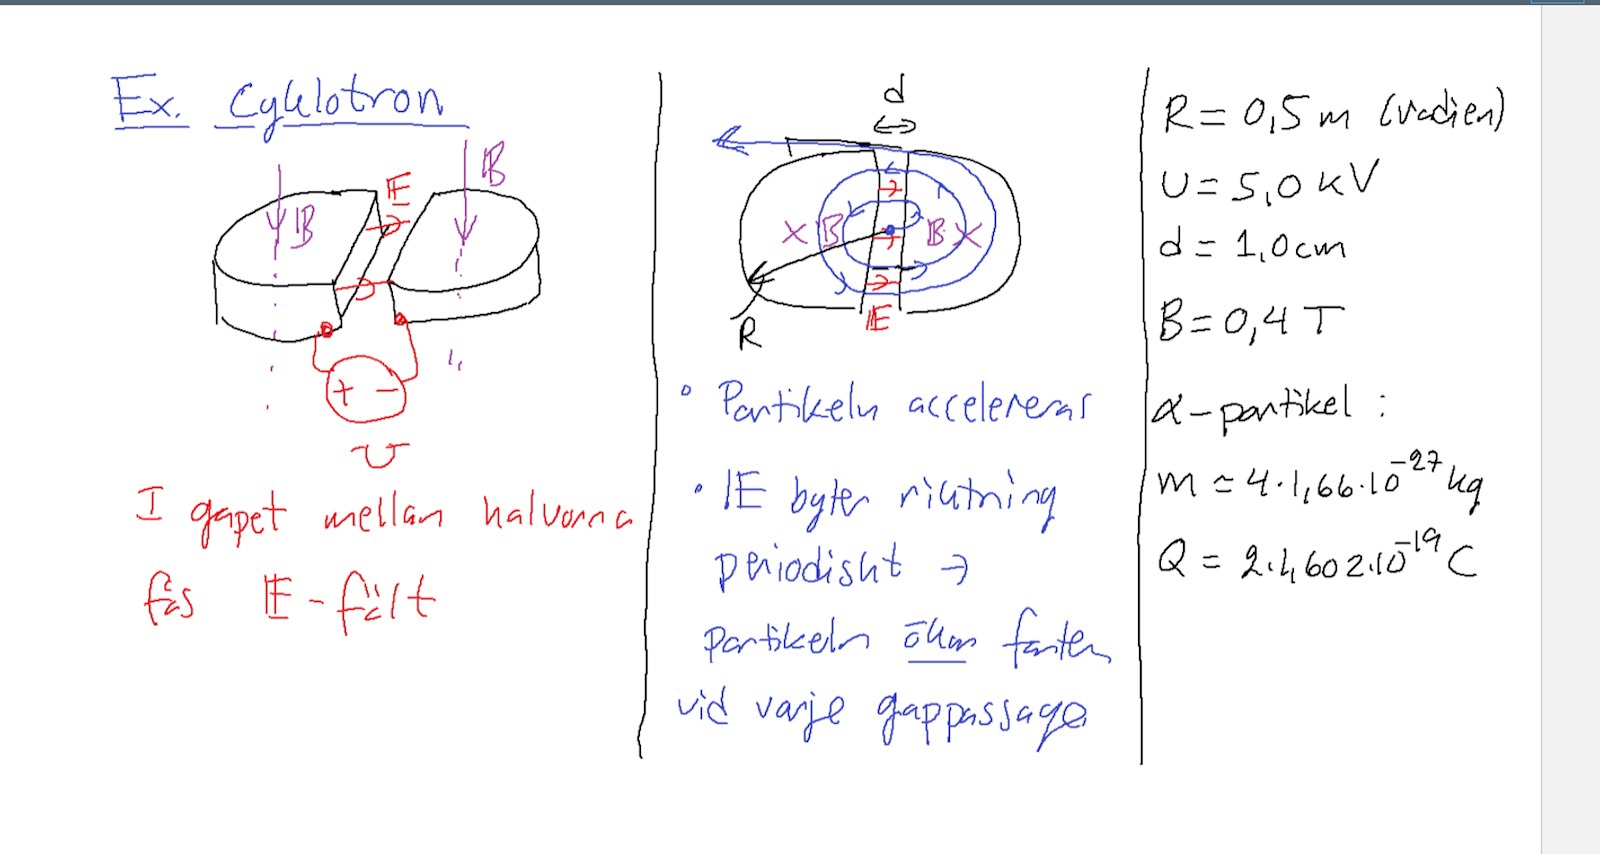 Ex. Cyklotron
B
E
B
+ −
U
I gapet mellan halvorna
fås E-fält
d
X B
B X
E
R
• Partikeln accelereras
• E byter riktning
periodiskt →
partikeln ökar farten
vid varje gappassage
R = 0,5 m (radien)
U = 5,0 kV
d = 1,0 cm
B = 0,4 T
α-partikel :
m = 4·1,66·10⁻²⁷ kg
Q = 2·1,602·10⁻¹⁹ C